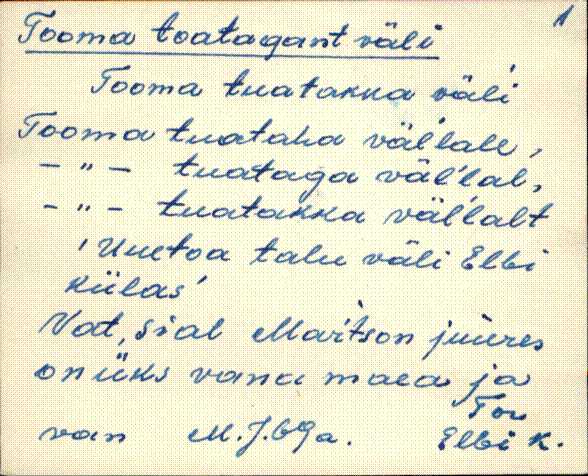 1
Tooma toatagant väli
Tooma tuatakka väli
Tooma tuatahaväl'lale,
- " - tuataga väl'lal,
- " - tuatakka väl'lalt
'Uuetoa talu väli Elbi
külas'
Vat, sial Mar'tson juures
on üks vana maea ja
Tor
van M. J. 69a. Elbi k.